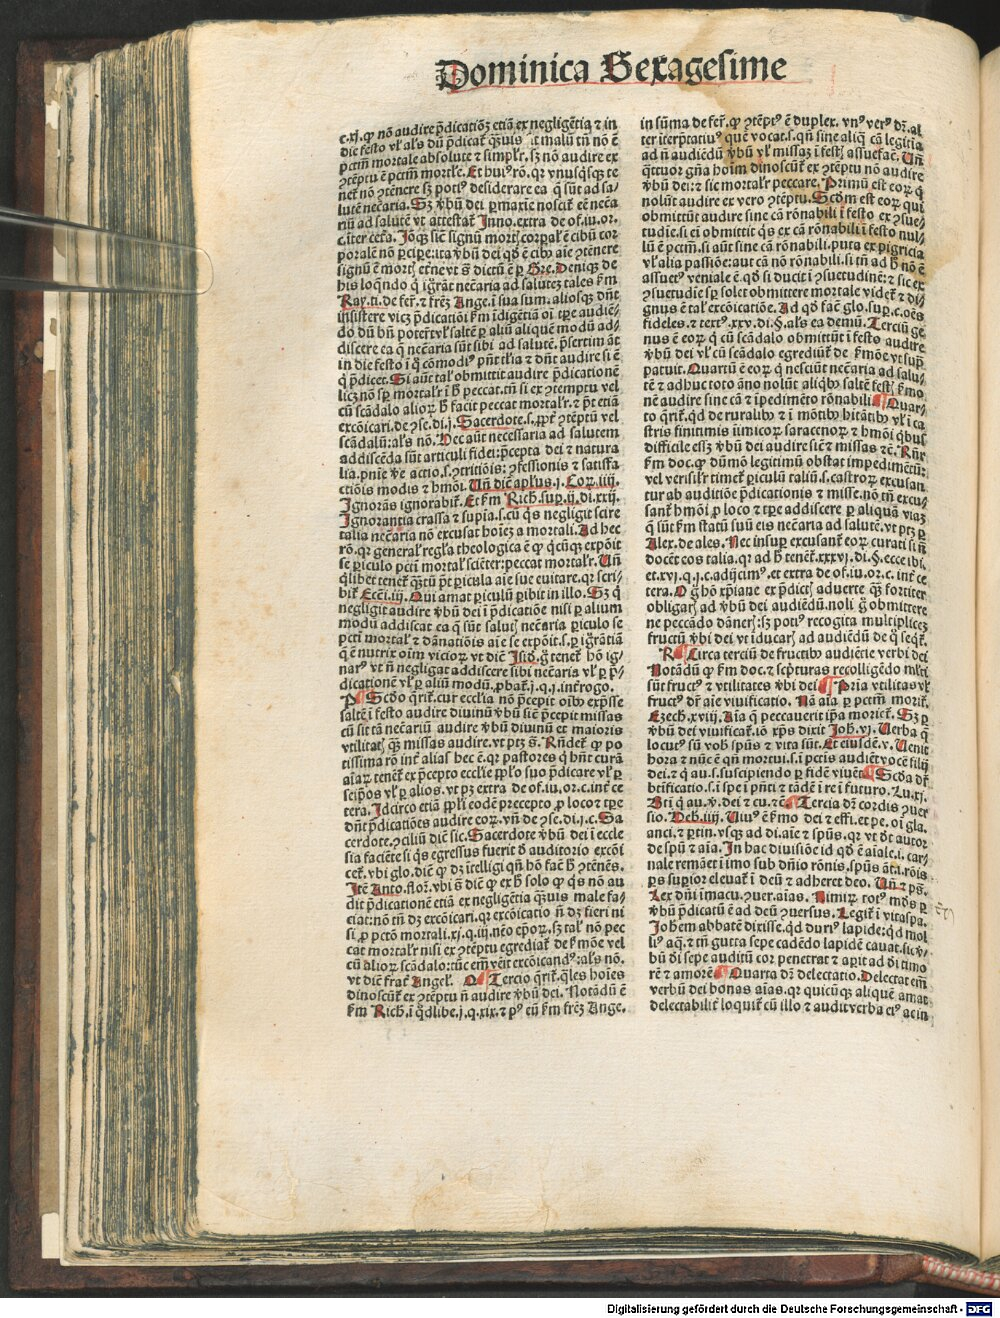 Dominica Sexagesime
c.xj. ꝙ nõ audire p̃dicatiõꝫ etiã ex negligẽtia ⁊ in
die festo vl̕ al̕s dũ p̃dicat᷑
pctm̃ mortale absolute ⁊ simpl̕r. sꝫ nõ audire ex
ꝯtẽptu ẽ pctm̃ mortl̕e. Et hui⁹ rõ. qr vnusq̃sqꝫ te
net᷑ nõ ꝯtẽnere sꝫ poti⁹ desiderare ea q̃ sũt ad sa/
lutẽ nec̃aria. Sꝫ v̓bũ dei ꝑmaxie noscit᷑ eẽ nec̃a
riũ ad salutẽ vt attestat᷑ Inno. extra de of. iu. or.
c. iter cetẽa. Joqꝫ sic̃ signũ
porale nõ ꝑcipe: ita v̓bũ dei qđ ẽ cib⁹ aĩe ꝯtẽnere
signũ ẽ
his loqñdo q̃ igr̃at nec̃aria ad salutẽꝫ tales f̓m
Ray. ti. de fer̃. ⁊ fr̃eꝫ Ange. ĩ sua sum. aliosqꝫ dñt
insistere vicꝫ p̃dicatiõi f̓m idigẽtiã oĩ tꝑe audiẽ/
do dũ hñ poter̃t vl̕ saltẽ ꝑ aliũ aliquẽ modũ ad/
discere ea q̃ nec̃aria sũt sibi ad salutẽ. p̃sertim ãt
in die festo ĩ q̊ cõmodi⁹ pñt
q̊ p̃dicet. Si aũt tal̕ obmittit audire p̃dicationẽ
licꝫ nõ sꝑ mortal̕r ĩ h̓ peccat. tñ si ex ꝯtemptu vel
cũ scãdalo alioꝝ h̓ facit peccat mortal̕r. ⁊ p̃t etiã
excõicari. de ꝯse. di. j. Sacerdote. s. ꝓpt̓ ꝯtẽptũ vel
scãdalũ: al̕s nõ. Hec aũt necessaria ad salutem
addiscẽda sũt articuli fidei: p̃cepta dei ⁊ natura
lia. pnĩe
ctiõis modis ⁊ hmõi. Uñ dic̃ apl̕us. j. Cor. iiij.
Ignorãs ignorabit᷑. Et f̓m Rich. suꝑ. ij. di. xxij.
Ignorantia crassa ⁊ supia. s. cũ q̊s negligit scire
talia nec̃aria nõ excusat hoĩeꝫ a mortali. Ad hec
rõ. qr general̕ regl̕a theologica ẽ ꝙ q̃cũqꝫ expõit
se ꝑiculo pcti mortal̕ sciẽter: peccat mortal̕r. Uñ
q̃libet tenet᷑ q̃ꝫtũ p̃t ꝑicula aĩe sue euitare. qr scri/
bit᷑ Ecc̃i. iij. Qui amat ꝑiculũ ꝑibit in illo. Sꝫ q̊
negligit audire v̓bũ dei ĩ p̃dicatiõe nisi ꝑ alium
modũ addiscat ea q̃ sũt salutꝭ nec̃aria ꝑiculo se
pcti mortal̕ ⁊ dãnatiõis aĩe se expõit. s. ꝑ igr̃ãtiã
q̃ ẽ nutrix oĩm vicioꝝ vt dic̃ Isid̓. g̊ tenet᷑ hõ ig/
nar⁹ vt ñ negligat addiscere sibi nec̃aria vl̕ ꝑ p̃/
dicationẽ vl̕ ꝑ aliũ modũ. ꝓbat᷑. j. q. j. int̓rogo.
Scđo q̃rit᷑. cur eccl̕ia nõ p̃cepit oĩb⁹ exp̃sse
saltẽ ĩ festo audire diuinũ v̓bũ sic̃ p̃cepit missas
cũ sit tã nec̃ariũ audire v̓bũ diuinũ et maioris
vtilitatꝭ q̃ꝫ missas audire. vt ptꝫ s̃. Rñdet᷑ ꝙ po
tissima rõ int̓ alias hec ẽ. qr pastores q̃ hñt curã
aĩaꝝ tenet᷑ ex p̃cepto eccl̕ie ppl̕o suo p̃dicare vl̕ ꝑ
seip̃os vl̕ ꝑ alios. vt pꝫ extra de of. iu. or. c. int̓ ce
tera. Idcirco etiã ppl̕i eodẽ precepto ꝓ loco ⁊ tꝑe
dñt p̃dicatiões audire coꝝ. vñ de ꝯse. di. j. c. Sa
cerdote. ꝯciliũ dic̃ sic. Sacerdote v̓bũ dei ĩ eccle
sia faciẽte si q̊s egressus fuerit đ auditorio excõi
cet᷑. vbi glo. dic̃ ꝙ dꝫ ĩtelligi qñ hõ fac̃ h̓ ꝯtẽnẽs.
Itẽ Anto. flor̃. vbi s̃ dic̃ ꝙ ex h̓ solo ꝙ q̊s nõ au
dit p̃dicationẽ etiã ex negligẽtia q̃ꝫuis male fa/
ciat: nõ tñ dꝫ excõicari. qr excõicatio ñ dꝫ fieri ni
si ꝓ pctõ mortali. xj. q. iij. nẽo ep̃oꝝ. sꝫ tal̕ nõ pec
cat mortal̕r nisi ex ꝯtẽptu egrediat᷑ de f̓mõe vel
cũ alioꝝ scãdalo: tũc em̃ veit excõicand⁹: al̕s nõ.
vt dic̃ frat̓ Angel̕. Tercio q̃rit᷑. q̃les hoĩes
dinoscũt᷑ ex ꝯtẽptu ñ audire v̓bũ dei. Notãdũ ẽ
f̓m Rich. ĩ q̊dlibe. j. q. xix. ⁊ p⁹ eũ f̓m fr̃eꝫ Ange.
in sũma de fer̃. ꝙ ꝯtẽpt⁹ ẽ duplex. vn⁹ ver⁹ dr̃. al
ter iter̃ptatiu⁹ quẽ vocat. s. qñ sine aliq̃ cã legitĩa
ad ñ audiẽdũ v̓bũ vl̕ missaꝫ ĩ festꝭ assuefac̃. Uñ
q̃ttuor gñа hoĩm dinoscũt᷑ ex ꝯtẽptu nõ audire
v̓bũ dei: ⁊ sic mortal̕r peccare. Primũ est eoꝝ q̃
nolũt audire ex vero ꝯtẽptu. Scđm est eoꝝ qui
obmittũt audire sine cã rõnabili ĩ festo ex ꝯsue/
tudĩe. si eĩ obmittit q̊s ex cã rõnabili ĩ festo nul/
lũ ẽ pctm̃. si aũt sine cã rõnabili. puta ex pigricia
vl̕ alia passiõe: aut cã nõ rõnabili. si tñ ad h̓ nõ ẽ
assuet⁹ veniale ẽ. qđ si ducit ĩ ꝯsuetudinẽ: ⁊ sic ex
ꝯsuetudĩe sꝑ solet obmittere mortale videt᷑ ⁊ di/
gnus ẽ tal̕ excõicatiõe. Ad qđ fac̃ glo. suꝑ. c. oẽs
fideles. ⁊ text⁹. xxv. di. §. al̕s ea demũ. Terciũ ge
nus ẽ eoꝝ q̃ cũ scãdalo obmittũt ĩ festo audire
v̓bũ dei vl̕ cũ scãdalo egrediũt᷑ de f̓mõe vt supꝰ
patuit. Quartũ ẽ eoꝝ q̃ nesciũt nec̃aria ad salu/
tẽ ⁊ adhuc toto ãno nolũt aliqb⁹ saltẽ festꝭ f̓mo
nẽ audire sine cã ⁊ ĩpedimẽto rõnabili. Quar/
to q̃rit᷑. qđ de ruralib⁹ ⁊ ĩ mõtib⁹ hitãtib⁹ vl̕ ĩ ca
stris finitimis iĩmicoꝝ saracenoꝝ ⁊ hmõi q̊bus
difficile eẽꝫ v̓bũ dei audire sic̃ ⁊ missas ⁊c̃. Rñr̃
f̓m doc. ꝙ dũmõ legitimũ obstat impedimẽtũ:
vel verisil̕r timet᷑ ꝑiculũ taliũ. s. castroꝝ excusan
tur ab auditiõe p̃dicationis ⁊ misse. nõ tñ excu/
sant᷑ hmõi ꝓ loco ⁊ tꝑe addiscere ꝑ aliquã viaꝫ
q̃ sũt f̓m statũ suũ eis nec̃aria ad salutẽ. vt ptꝫ ꝑ
Alex. de ales. Nec insuꝑ excusant᷑ eoꝝ curati si ñ
docẽt eos talia. qr ad h̓ tenẽt᷑. xxxvj. di. §. ecce ibi.
et. xvj. q. j. c. adijcim⁹. et extra de of. iu. or. c. int̓ ce
tera. O g̊ hõ xp̃iane ex p̃dictꝭ aduerte q̃ꝫ fortiter
obligarꝭ ad v̓bũ dei audiẽdũ. noli g̊ obmittere
ne peccãdo dãnerꝭ: sꝫ poti⁹ recogita multiplicẽꝫ
fructũ v̓bi dei vt iducarꝭ ad audiẽdũ de q̊ seqt᷑.
Circa terciũ de fructib⁹ audiẽtie verbi dei
Notãdũ ꝙ f̓m doc. ⁊ scpturas recolligẽdo ml̕ti
sũt fruct⁹ ⁊ vtilitates v̓bi dei. Pria vtilitas vl̕
fruct⁹ dr̃ aĩe viuificatio. Nã aĩa ꝑ pctm̃ morit᷑.
Ezech. xviij. Aĩa q̃ peccauerit ip̃a moriet᷑. Sꝫ ꝑ
v̓bũ dei viuificat᷑. iõ xp̃s dixit Joh. vj. Uerba q̃
locut⁹ sũ vob̓ spũs ⁊ vita sũt. Et eiusdẽ. v. Uenit
hora ⁊ nũc ẽ qñ mortui. s. ĩ pctis audiẽt vocẽ filij
dei. ⁊ q̃ au. s. suscipiendo ꝑ fidẽ viuẽt. Scđa dr̃
btificatio. s. ĩ spe ĩ pñti ⁊ tãdẽ ĩ re ĩ futuro. Lu. xj.
Bti q̃ au. v̓. dei ⁊ cu. ⁊c̃. Tercia dꝫ cordis ꝯuer
sio. Heb. iiij. Uiu⁹ ẽ f̓mo dei ⁊ effi. et pe. oĩ gla.
anci. ⁊ ꝑtin. vsqꝫ ad di. aĩe ⁊ spũs. qr vt dt̓ autor
de spũ ⁊ aĩa. In hac diuisiõe id qđ ẽ aĩale. i. car/
nale remãet ĩ imo sub dñio rõnis. spũs ãt. i. rõis
ꝑs suꝑior eleuat᷑ ĩ deũ ⁊ adheret deo. Uñ ⁊ ps̃.
Lex dñi ĩmacu. ꝯuer. aĩas. Nimiꝝ tot⁹ mũd⁹ ꝑ
v̓bũ p̃dicatũ ẽ ad deũ ꝯuersus. Legit᷑ ĩ vitaspa.
Johem abbatẽ dixisse. qđ duri⁹ lapide: qđ mol
li⁹ aq̃. ⁊ tñ gutta sepe cadẽdo lapidẽ cauat. sic v̓/
bũ dĩ sepe auditũ cor penetrat ⁊ aꝑit ad dĩ timo
rẽ ⁊ amorẽ. Quarta dꝫ delectatio. Delectat em̃
verbũ dei bonas aĩas. qr quicũqꝫ aliquẽ amat
delectabilit̓ loquit᷑ cũ illo ⁊ audit verba ei⁹ ac in
Digitalisierung gefördert durch die Deutsche Forschungsgemeinschaft - DFG